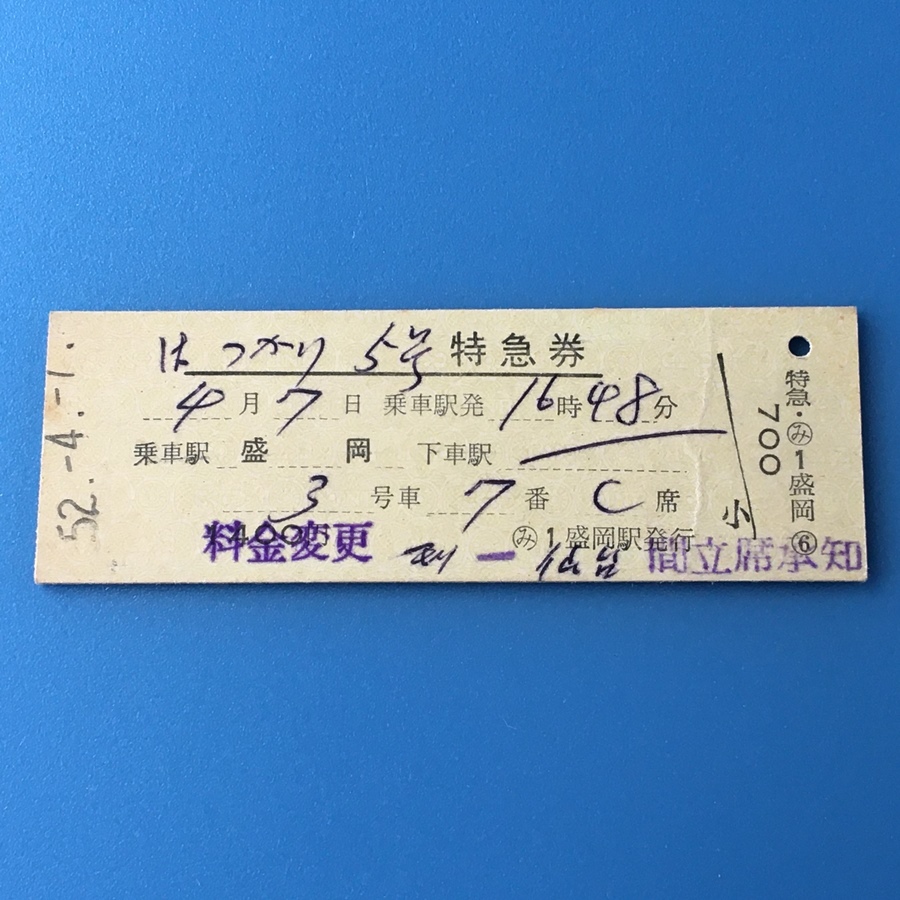 52.-4.-1.
はつかり 5号 特急券
4月7日 乗車駅発 16時48分
乗車駅 盛岡 下車駅
3号車 7番 C席
料金変更 400円 ㋯1盛岡駅発行
― 仙台 間立席承知
小
特急・㋯1盛岡⑥
700